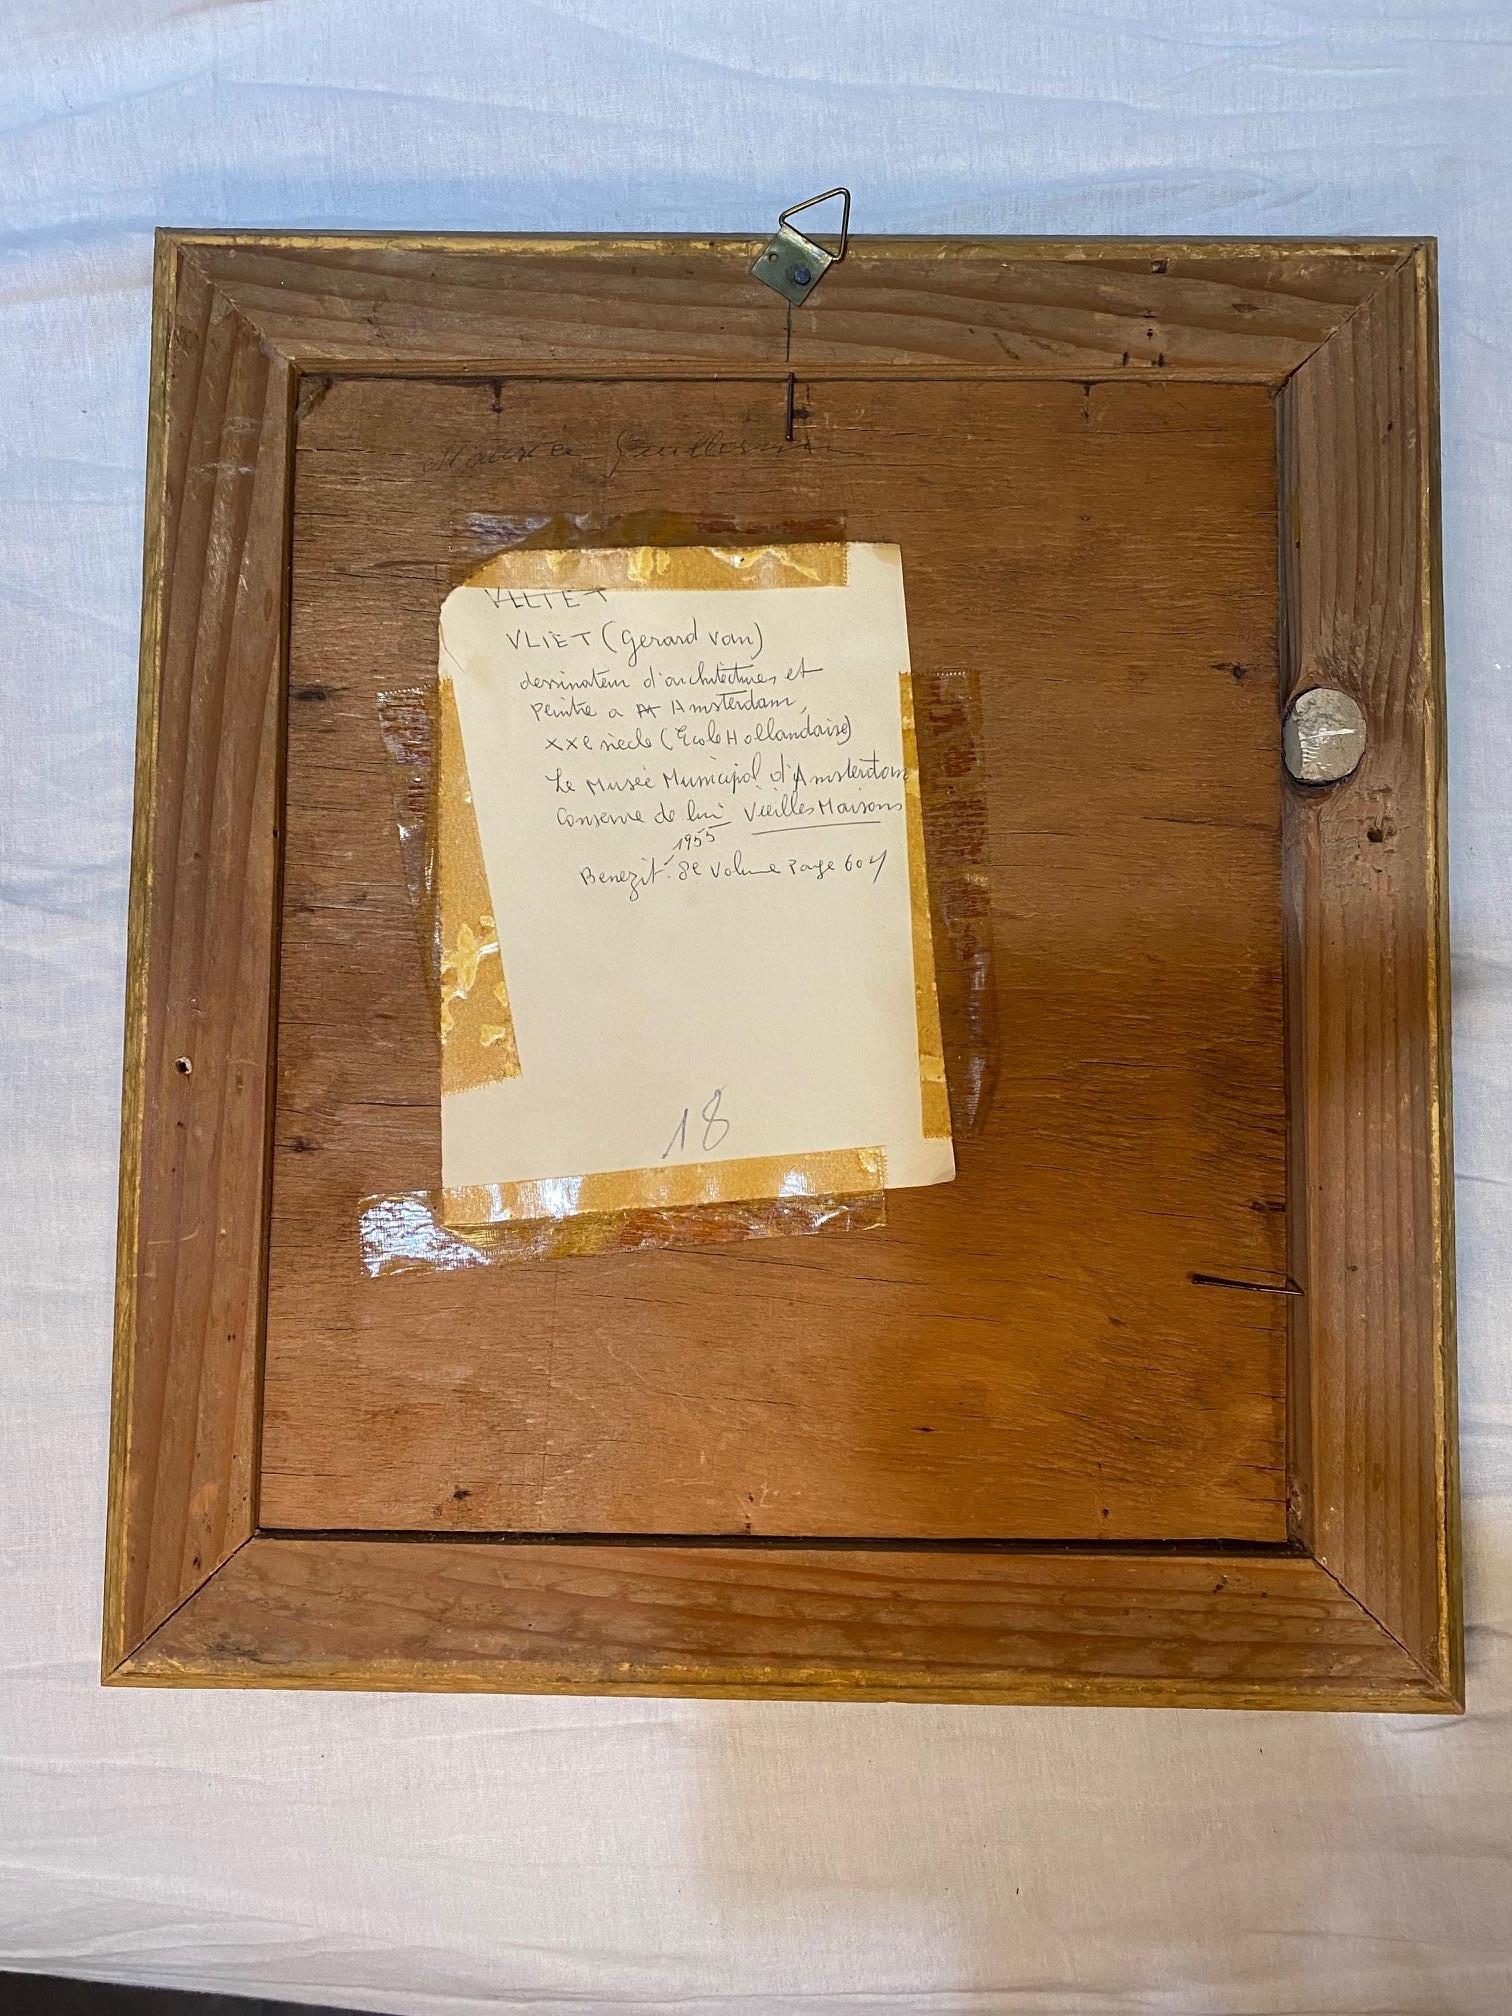 Maurice Guillemin
VLIET
VLIET (Gerard van)
dessinateur d'architectures et
Peintre a Amsterdam,
XXe siècle (Ecole Hollandaise)
Le Musée Municipal d'Amsterdam
Conserve de lui Vieilles Maisons
1955
Benezit. 8e Volume Page 604
18